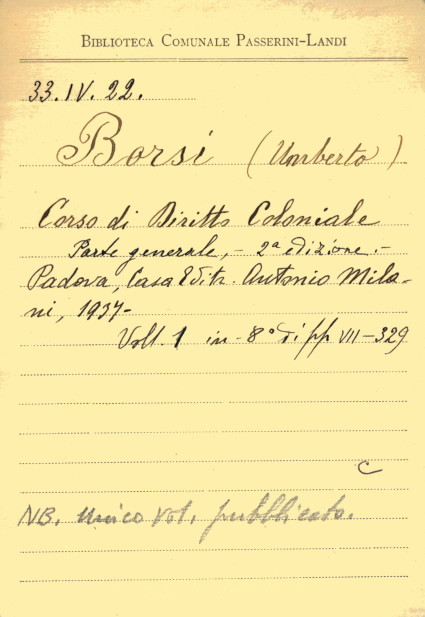 BIBLIOTECA COMUNALE PASSERINI-LANDI
33.IV.22.
Borsi (Umberto)
Corso di Diritto Coloniale
Parte generale, - 2ª edizione. -
Padova, Casa Editr. Antonio Mila-
ni, 1937-
Voll. 1 in - 8° di pp VII-329
C
NB. unico vol. pubblicato.